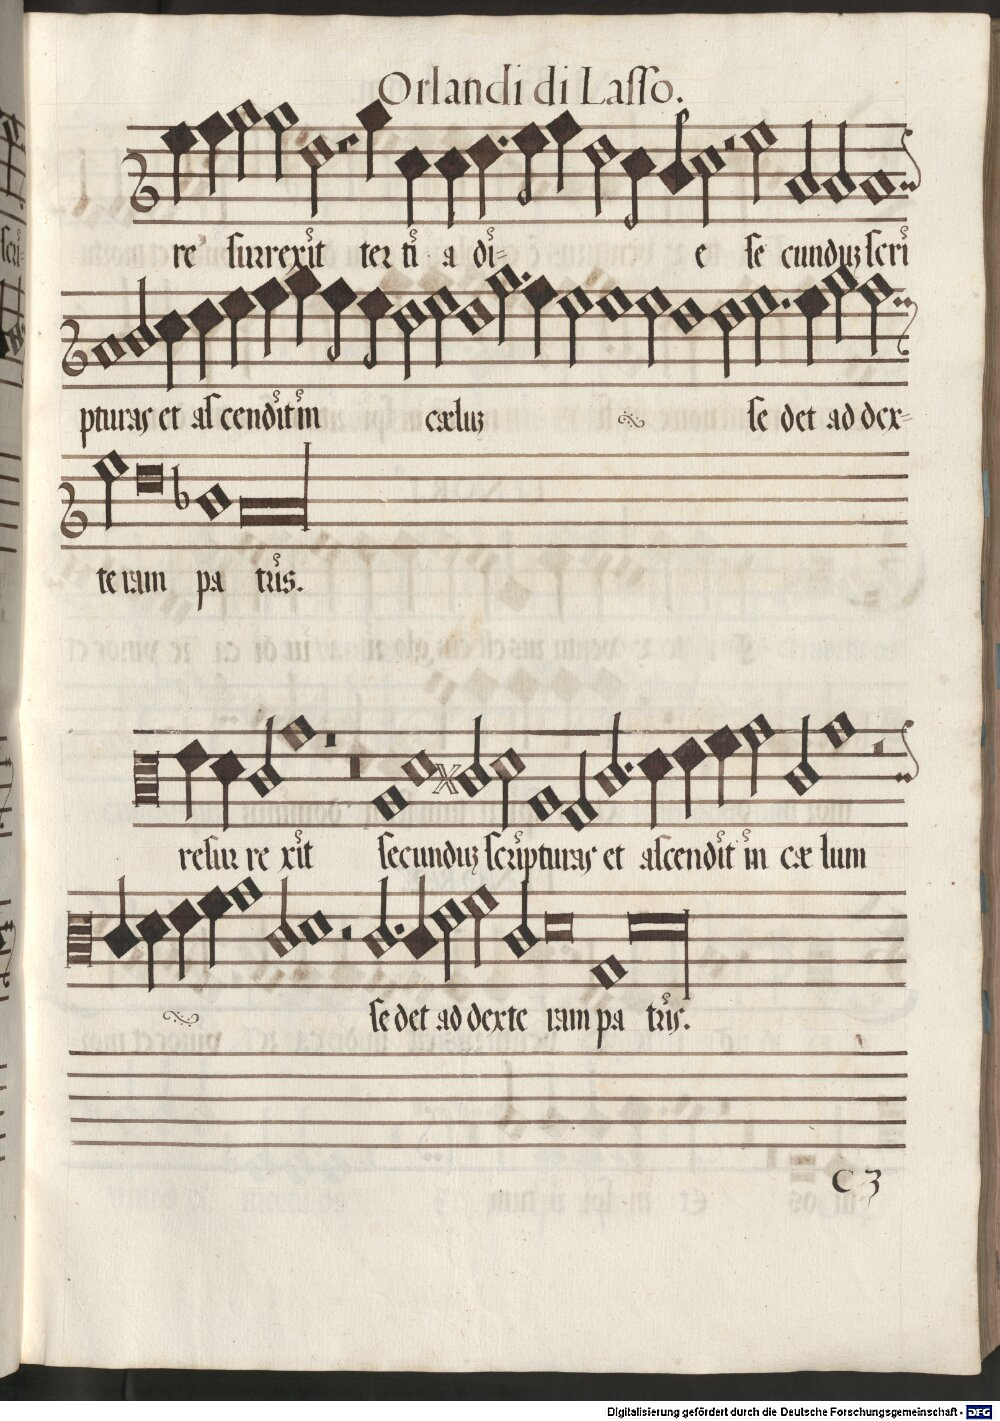 Orlandi di Lasso.
re surrexit ter ti a di= e se cunduz scri
pturas et ascenditim cœluz se det ad dex=
te ram pa tris.
resur re xit secunduz scripturas et ascendit in cæ lum
se det ad dexte ram pa tris.
C 3
Digitalisierung gefördert durch die Deutsche Forschungsgemeinschaft - DFG